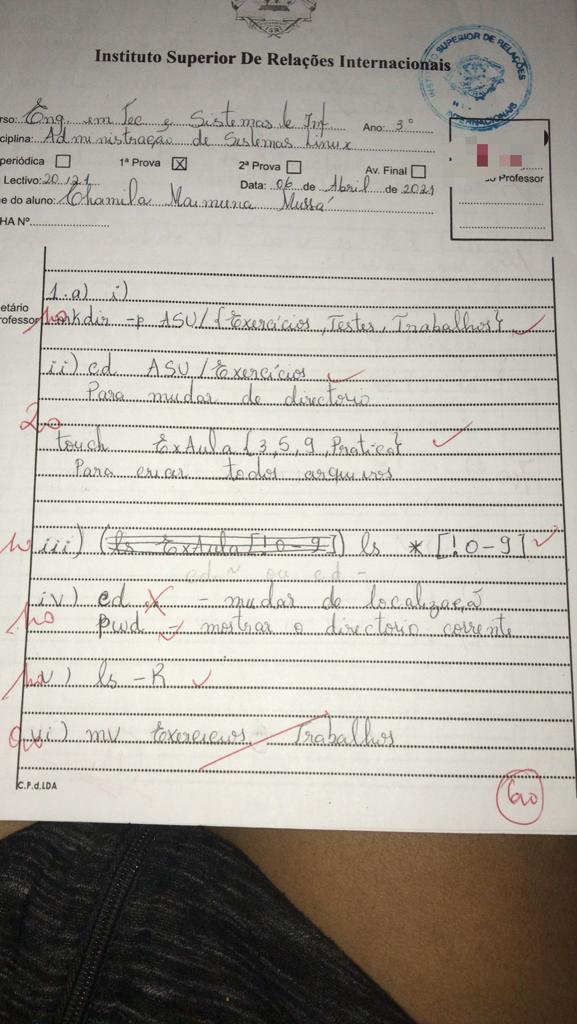 Instituto Superior De Relações Internacionais
SUPERIOR DE RELAÇÕES
INTERNACIONAIS
rso: Eng. em Tec e Sistemas de Inf. Ano: 3º
ciplina: Administração de Sistemas Linux
periódica 1ª Prova X 2ª Prova Av. Final
Professor
Lectivo: 20/21 Data: 06 de Abril de 2021
e do aluno: Chamila Maimuna Mussá
HA Nº
1.a) i)
etário
rofessor
mkdir -p ASU/{Exercícios, Testes, Trabalhos}
ii) cd ASU/Exercícios
Para mudar de directorio
2,0
touch ExAula{3,5,9,Pratica}
Para criar todos arquivos
1,0 iii) (ls ExAula[!0-9]) ls *[!0-9]
cd ~ ou cd -
iv) cd - mudar de localizaçã
1,0 pwd - mostrar o directorio corrente
v) ls -R
0,0 vi) mv Exercicios Trabalhos
C.P.d.LDA
6,0